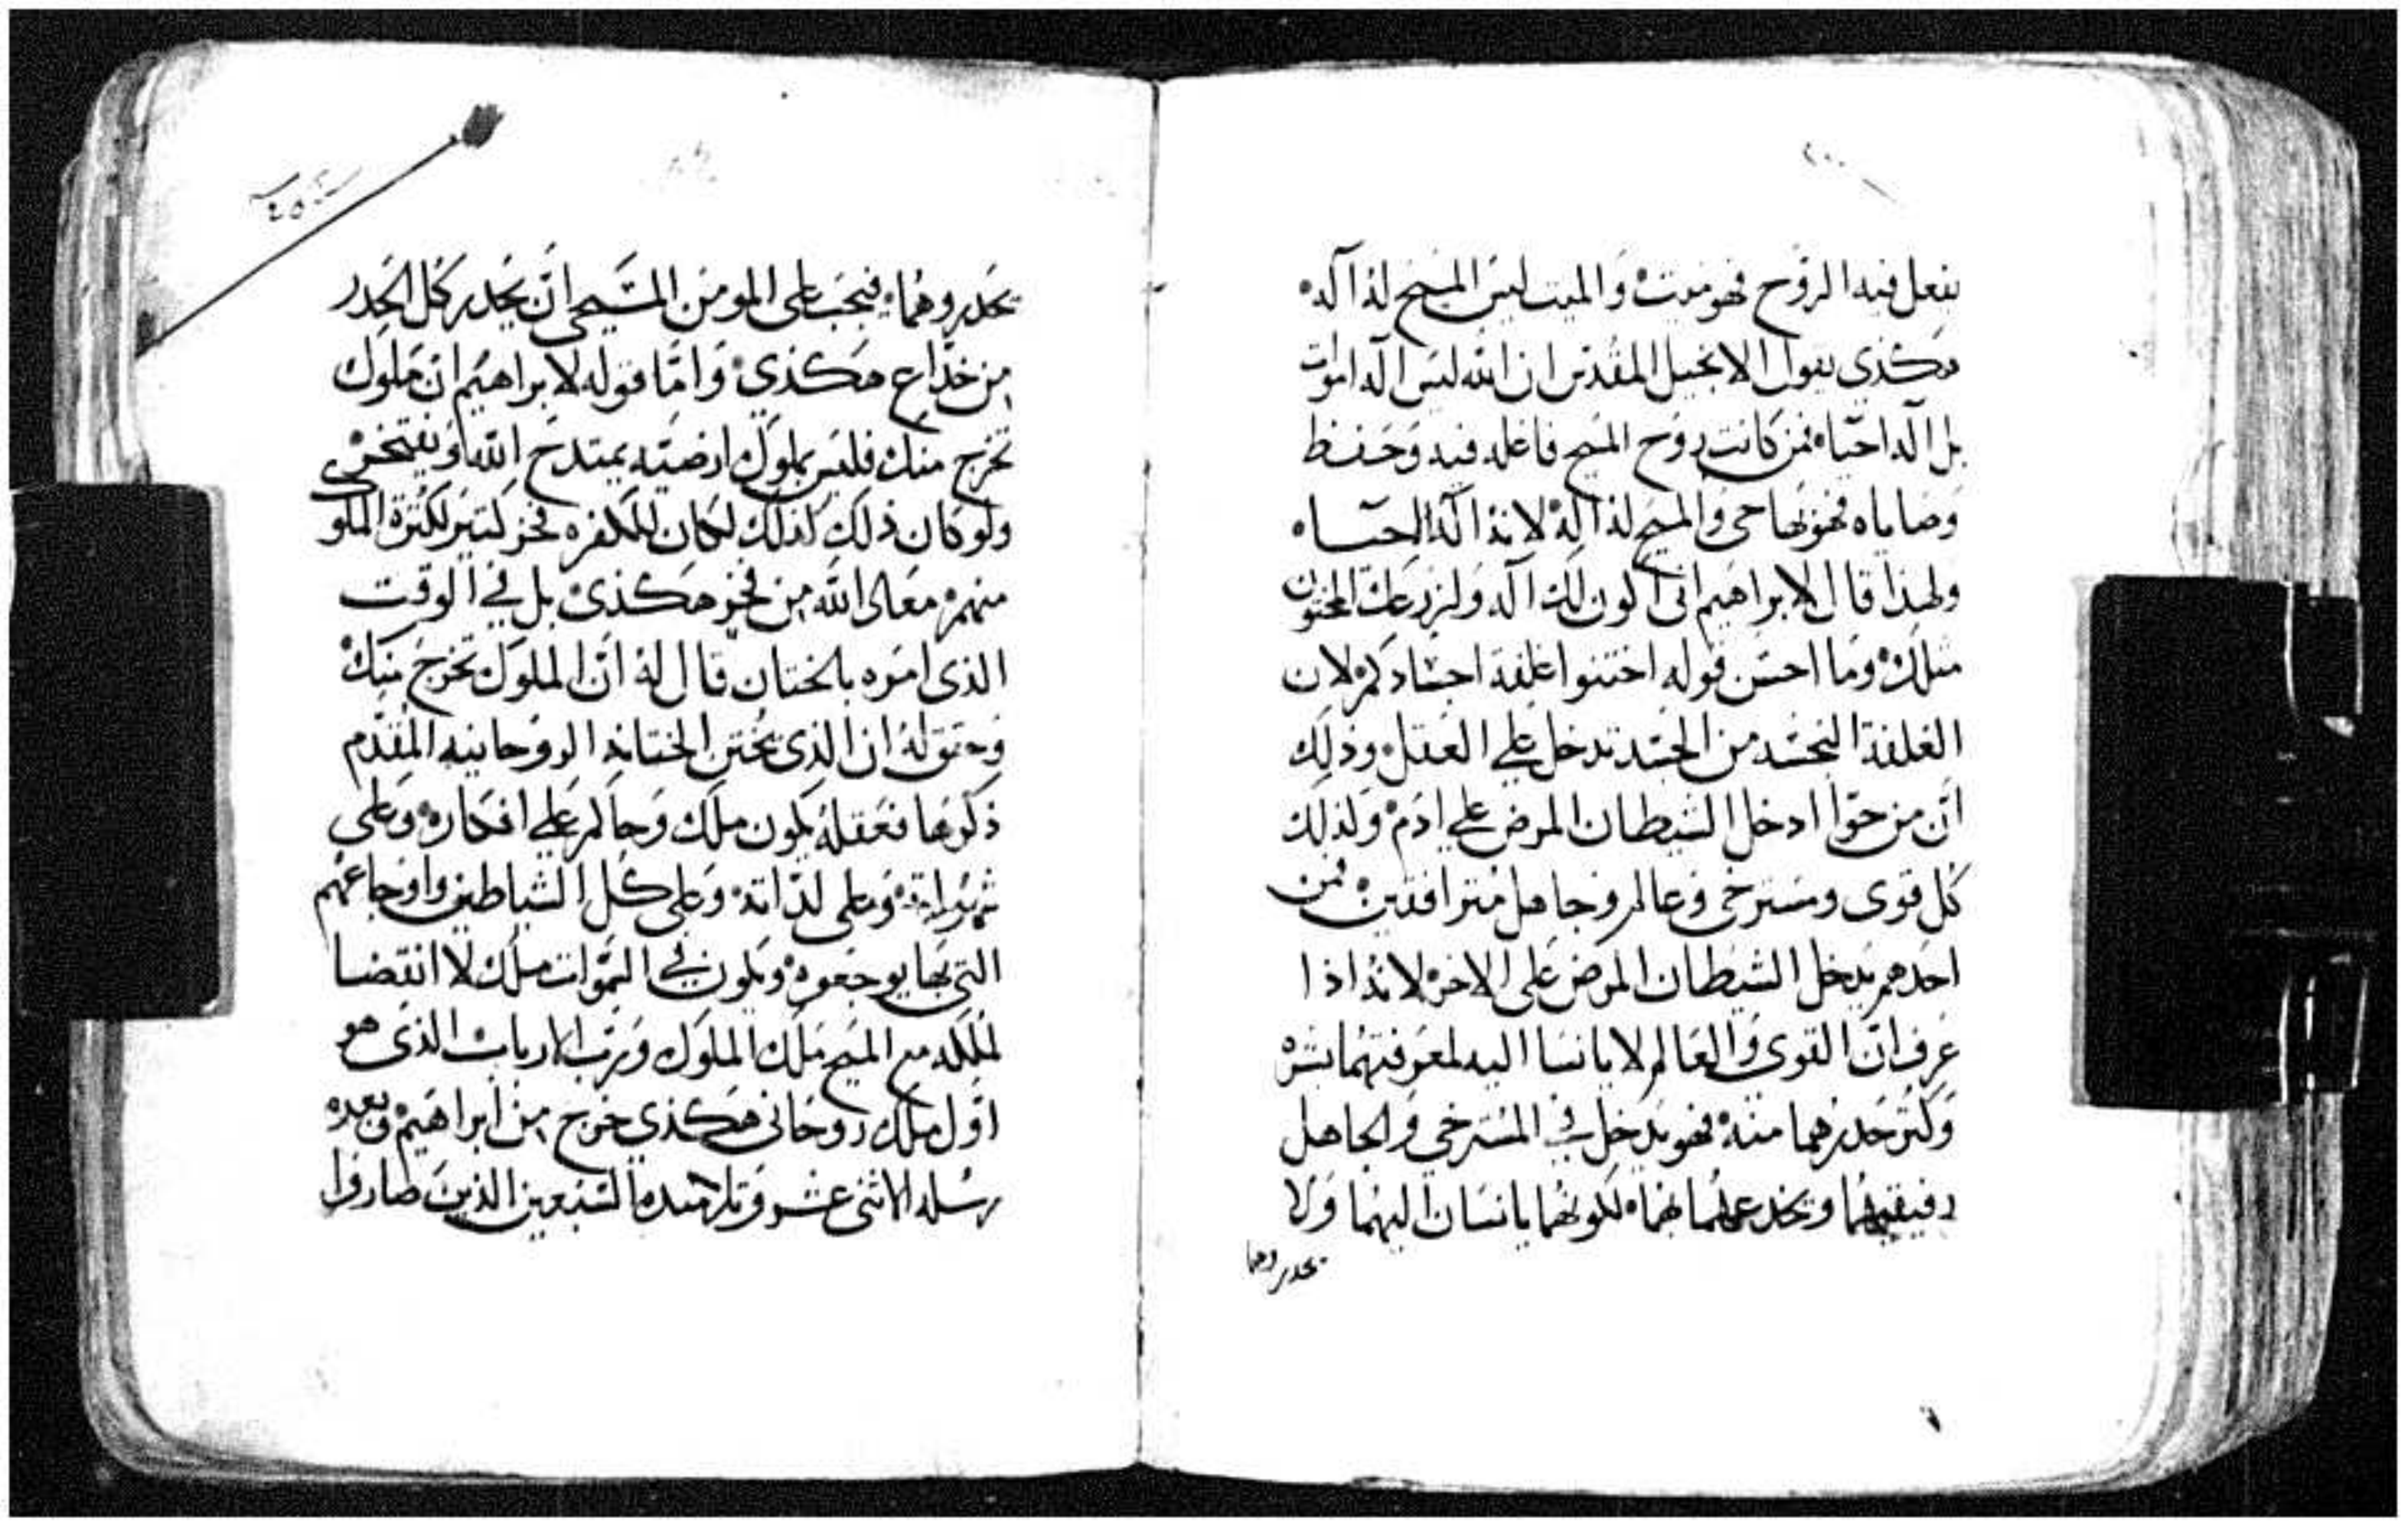 يفعل فيه الروح فهو ميت والميت ليس المسيح له اله
هكذي يقول الانجيل المقدس ان الله ليس اله اموات
بل اله احياء فمن كانت روح المسيح فاعله فيه وحفظ
وصاياه فهو بها حي والمسيح له اله لانه اله الاحيـاء
ولهذا قال لابراهيم اني اكون لك اله ولزرعك المختون
مثلك وما احسن قوله اختنوا غلفة اجسادكم لان
الغلفة النجسه من الجسد تدخل علي العقل وذلك
ان من حوا ادخل الشيطان المرض علي ادم ولذلك
كل قوي ومسترخي وعالم وجاهل مترافقين فمن
احدهم يدخل الشيطان المرض علي الاخر لانه اذا
عرف ان القوي والعالم لا يانسا اليه لمعرفتهما بشره
وكتر حدرهما منه فهو يدخل في المسترخي والجاهل
رفيقيهما ويخدعهما بهما لكونهما يانسان اليهما ولا
تحدروهما
تحدروهما فيجب علي المومن المسيحي ان يحدر كل الحدر
من خداع هكذي واما قوله لابراهيم ان ملوك
تخرج منك فليس بملوك ارضيه يمتدح الله ويفتخر
ولو كان ذلك كذلك لكان للكفره فخر كتير لكترة الملو
منهم معاد الله من فخر هكذي بل في الوقت
الذي امره بالختان قال له ان الملوك تخرج منك
وحقق له ان الذي يختتن الختانه الروحانيه المقدم
ذكرها فعقله يكون ملك وحاكم علي افكاره وعلي
شهواته وعلي لداته وعلي كل الشياطين واوجاعهم
التي بها يوجعوه ويكون في السموات ملك لا انقضا
لملكه مع المسيح ملك الملوك ورب الارباب الذي هو
اول ملك روحاني هكذي خرج من ابراهيم وبعده
رسله الاثني عشر وتلاميده السبعين الذين صاروا